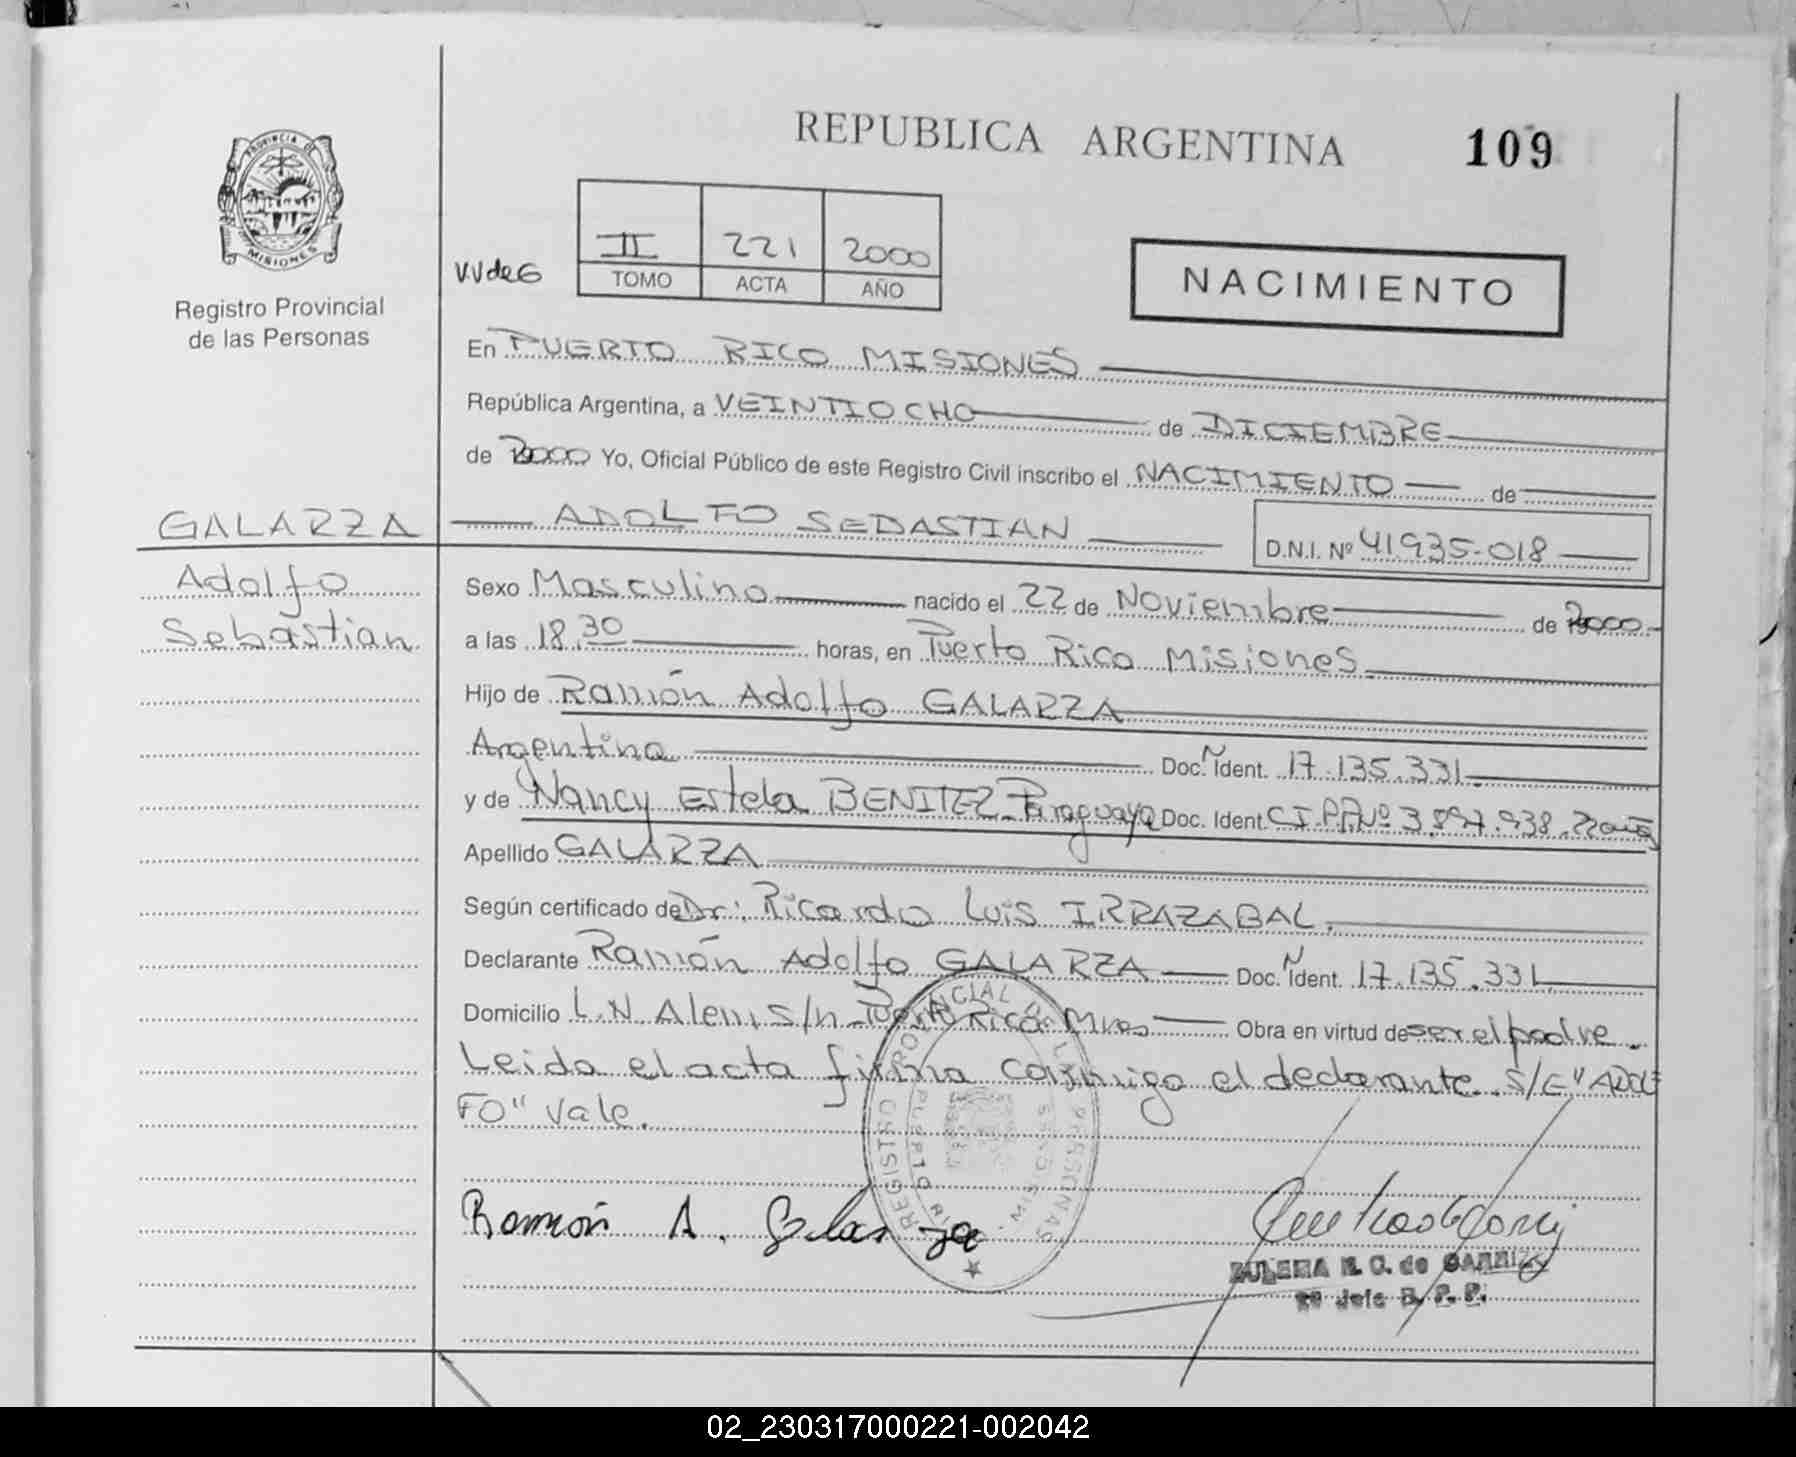 REPUBLICA ARGENTINA 109
PROVINCIA DE
MISIONES
Registro Provincial
de las Personas
VVdeG
II 221 2000
TOMO ACTA AÑO
NACIMIENTO
En PUERTO RICO MISIONES
República Argentina, a VEINTIOCHO de DICIEMBRE
de 2000 Yo, Oficial Público de este Registro Civil inscribo el NACIMIENTO de
GALARZA
ADOLFO SEBASTIAN D.N.I. Nº 41935-018
Adolfo
Sebastian
Sexo Masculino nacido el 22 de Noviembre de 2000.-
a las 18,30 horas, en Puerto Rico Misiones.
Hijo de Ramón Adolfo GALARZA
Argentina Doc. Ñ Ident. 17.135.331
y de Nancy Estela BENITEZ Paraguaya Doc. Ident. C.I.
Apellido GALARZA
Según certificado de Dr. Ricardo Luis IRRAZABAL.
Declarante Ramón Adolfo GALARZA Doc. Ñ Ident. 17.135.331
Domicilio L.N Alem s/n Puerto Rico Mnes Obra en virtud de ser el padre.
Leida el acta firma conmigo el declarante. S/E" ADOL
FO" Vale.
REGISTRO PROVINCIAL DE LAS PERSONAS
PUERTO RICO
Ramón A. Galarza
R. P. P.
02_230317000221-002042